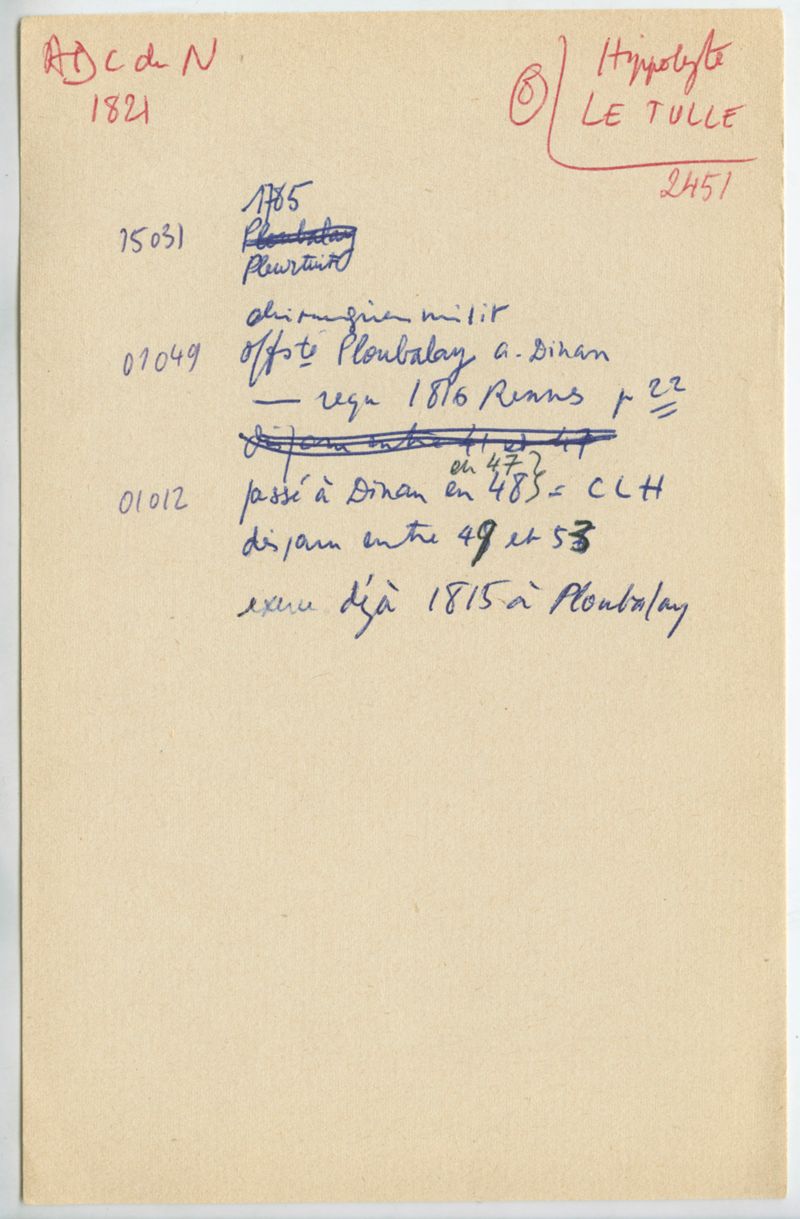 ADC du N
1821
8
Hippolyte
LE TULLE
2451
1785
15031 Ploubalay
Pleurtuit
chirurgien milit
01049 offsté Ploubalay a. Dinan
— reçu 1816 Rennes p 22
disparu entre 41 et 47
en 47 ?
01012 passé à Dinan en 48 = CLH
disparu entre 49 et 53
exerce déjà 1815 à Ploubalay